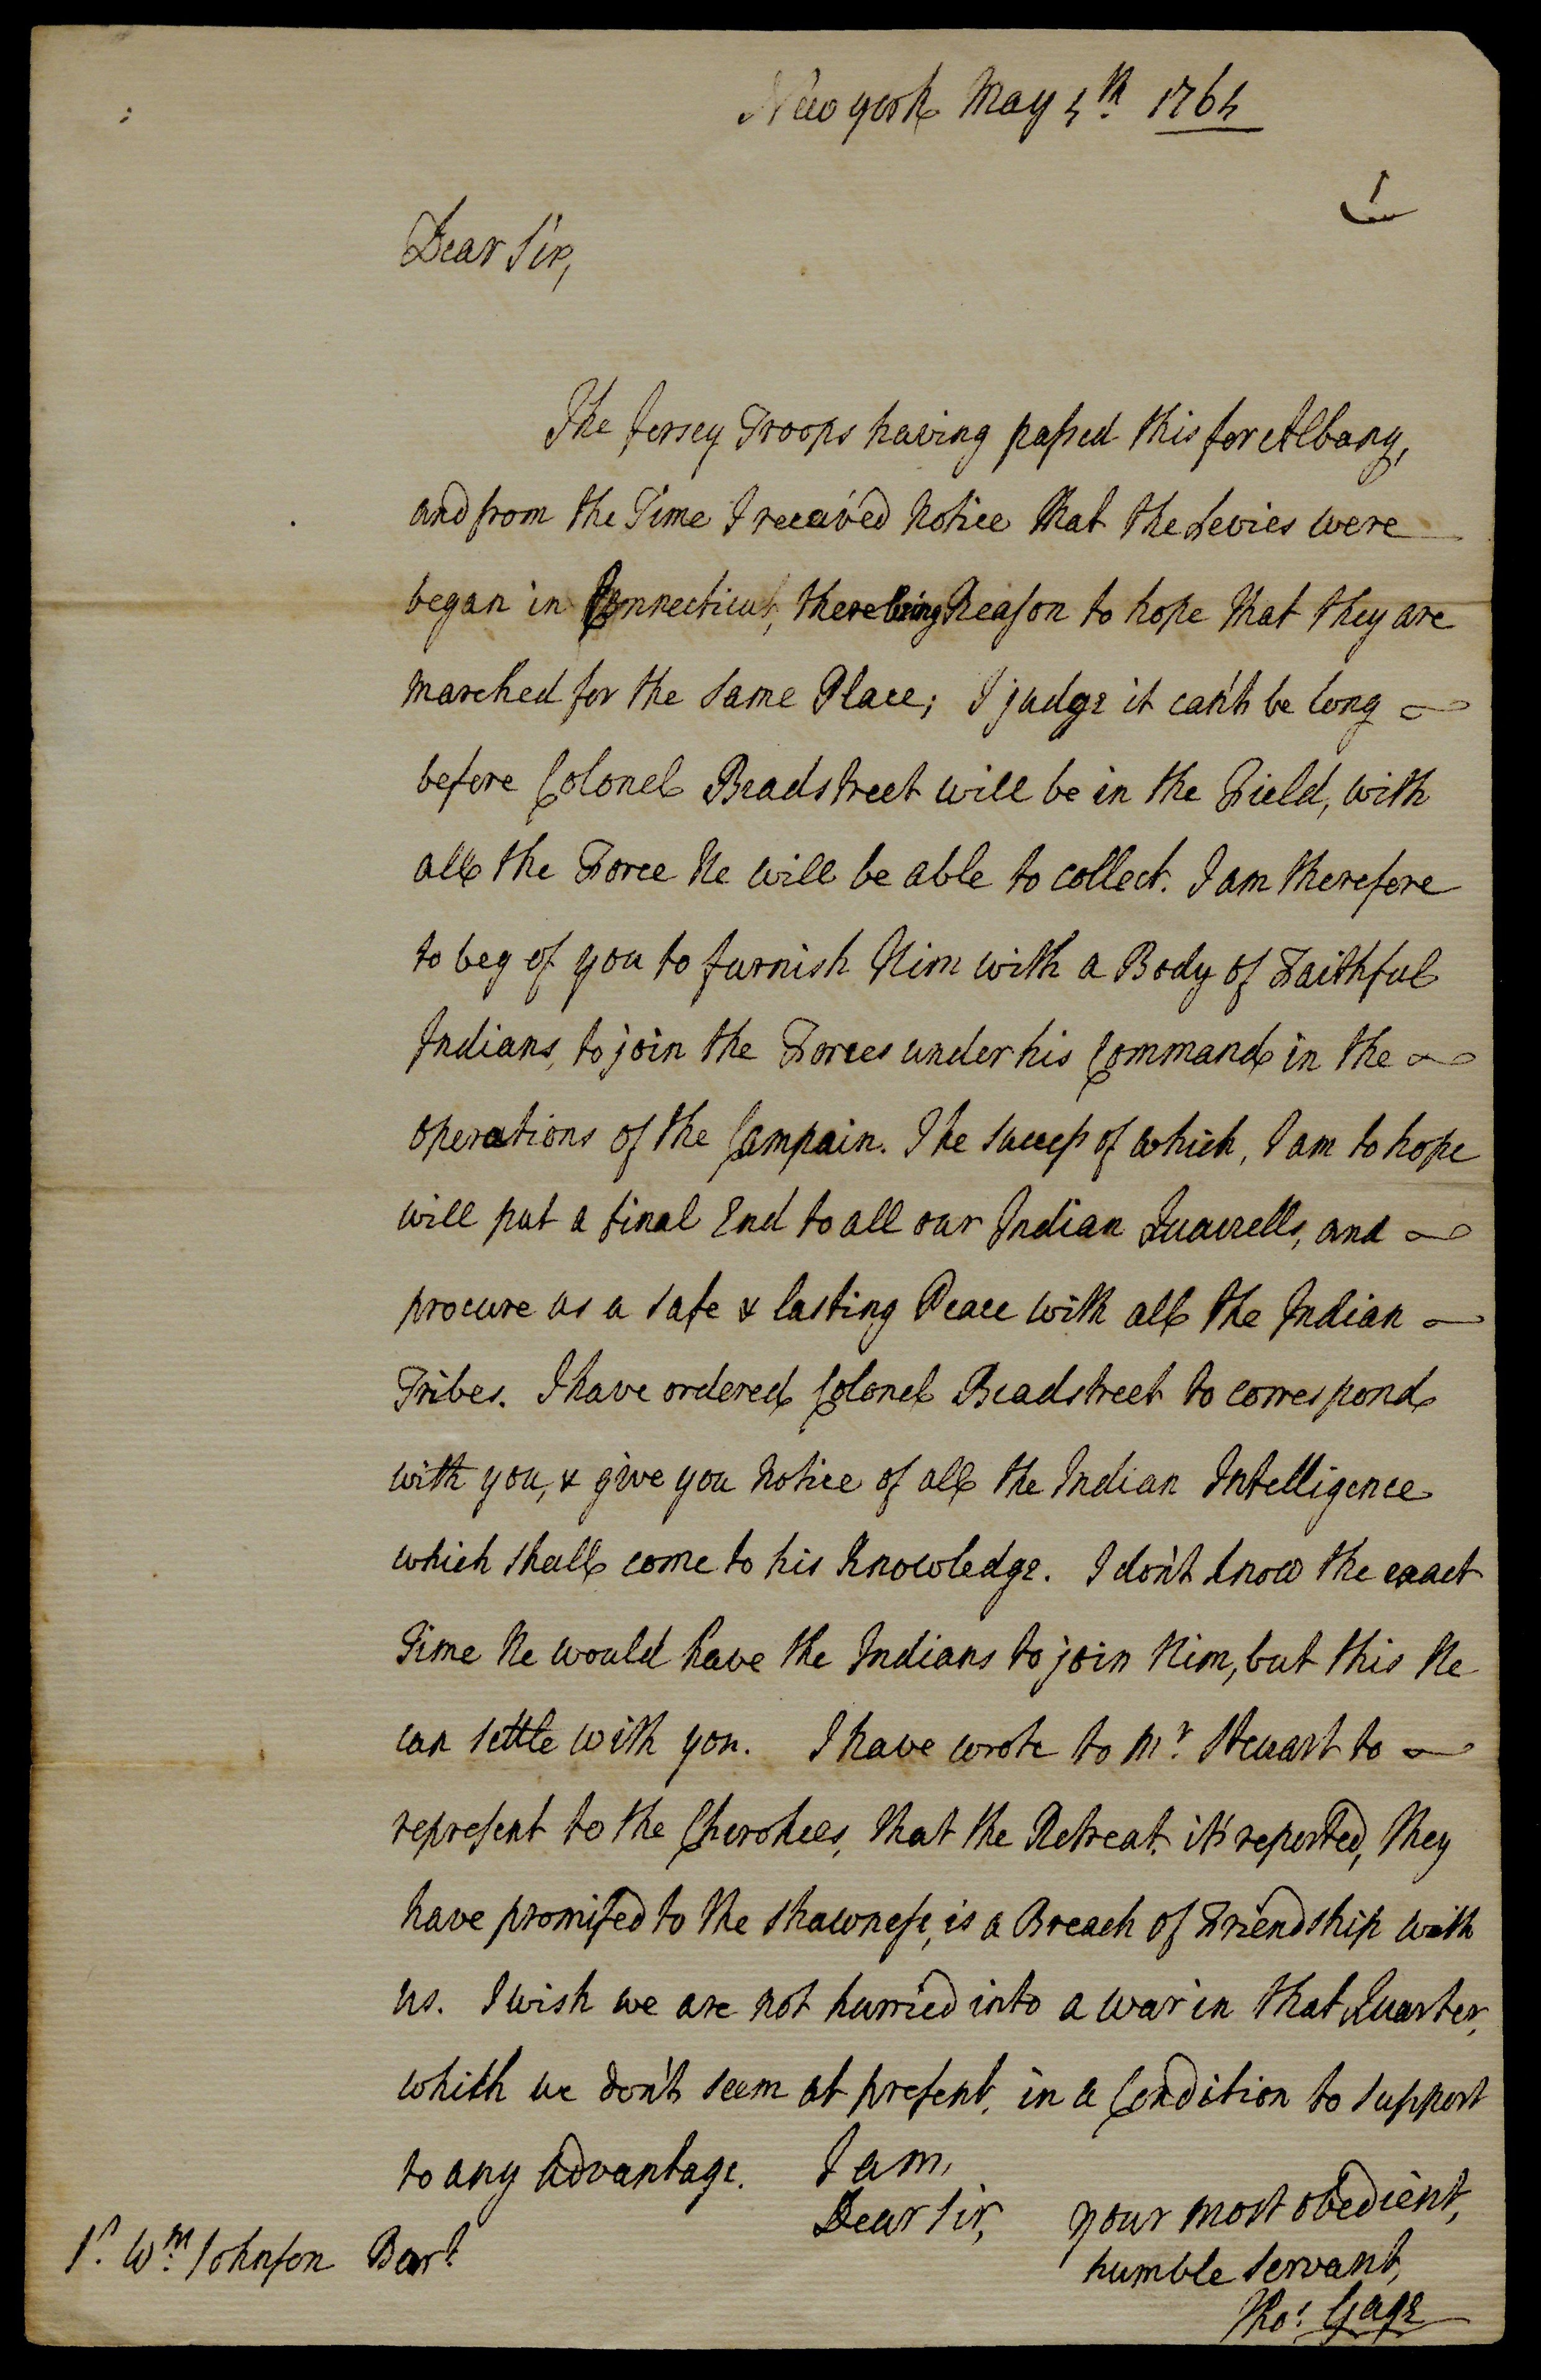 New york May 4th. 1764
1
Dear Sir,
The Jersey Troops having passed this for Albany,
and from the Time I receiv'd Notice that the Levies were
began in Connecticut, there being Reason to hope that they are
marched for the same Place; I judge it can't be long
before Colonel Bradstreet will be in the Field, with
all the Force He will be able to collect. I am therefore
to beg of you to furnish Him with a Body of Faithful
Indians, to join the Forces under his Command in the
operations of the Campain. The success of which, I am to hope
will put a final End to all our Indian Quarrells, and
procure us a safe & lasting Peace with all the Indian
Tribes. I have ordered Colonel Bradstreet to correspond
with you, & give you Notice of all the Indian Intelligence
which shall come to his Knowledge. I don't know the exact
Time He would have the Indians to join Him, but this He
can settle with you. I have wrote to Mr. Stewart to
represent to the Cherokees, that the Retreat, it's reported, they
have promised to the Shawnese, is a Breach of Friendship with
us. I wish we are not hurried into a War in that Quarter,
which we don't seem at present, in a Condition to support
to any advantage. I am,
Dear Sir, your most obedient,
humble Servant,
Thos. Gage
Sr. Wm. Johnson Bart